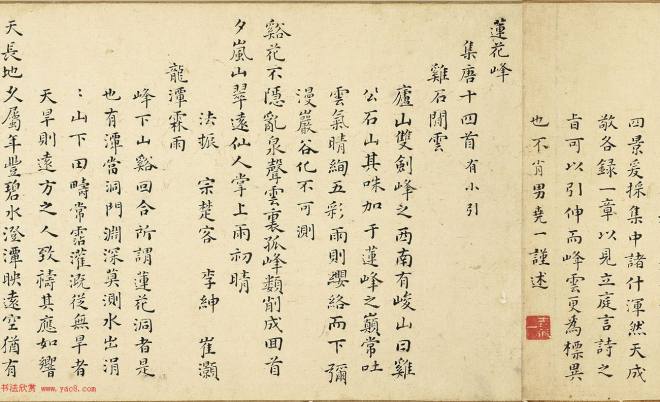 四景爰採集中諸什渾然天成
敬各録一章以見立庭言詩之
旨可以引伸而峰雲更為標異
也不肖男堯一謹述
蓮花峰
集唐十四首 有小引
雞石閒雲
廬山雙劍峰之西南有峻山曰雞
公石山其咮加于蓮峰之巔常吐
雲氣晴絢五彩雨則纓絡而下彌
漫巖谷化不可測
谿花不隱亂泉聲雲裏孤峰類削成回首
夕嵐山翠遠仙人掌上雨初晴
法振 宗楚客 李紳 崔灝
龍潭霖雨
峰下山谿回合所謂蓮花洞者是
也有潭當洞門淵深莫測水出涓
：山下田疇常霑灌溉従無旱者
天旱則遠方之人致禱其應如響
天長地久屬年豐碧水澄潭映遠空猶有
书法欣赏 www.yac8.com